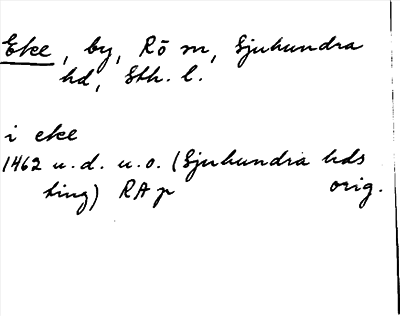 Eke, by, Rö sn, Sjuhundra
hd, Sth. l.
i eke
1462 u.d. u.o. (Sjuhundra hds
ting) RAp orig.